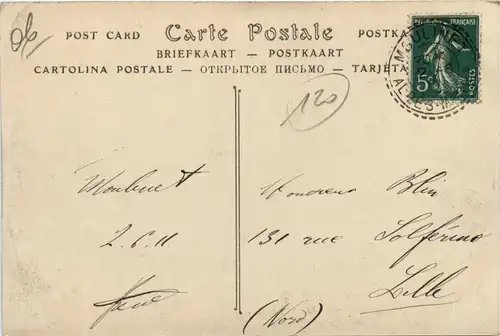 06
POST CARD Carte Postale POSTKA
BRIEFKAART — POSTKAART
CARTOLINA POSTALE — ОТКРЫТОЕ ПИСЬМО — TARJETA
RÉPUBLIQUE FRANÇAISE
5c POSTES
MOULINET
ALPES-M
120
Moulinet
2.6.11
Monsieur Blin
131 rue Solférino
Lille
(Nord)